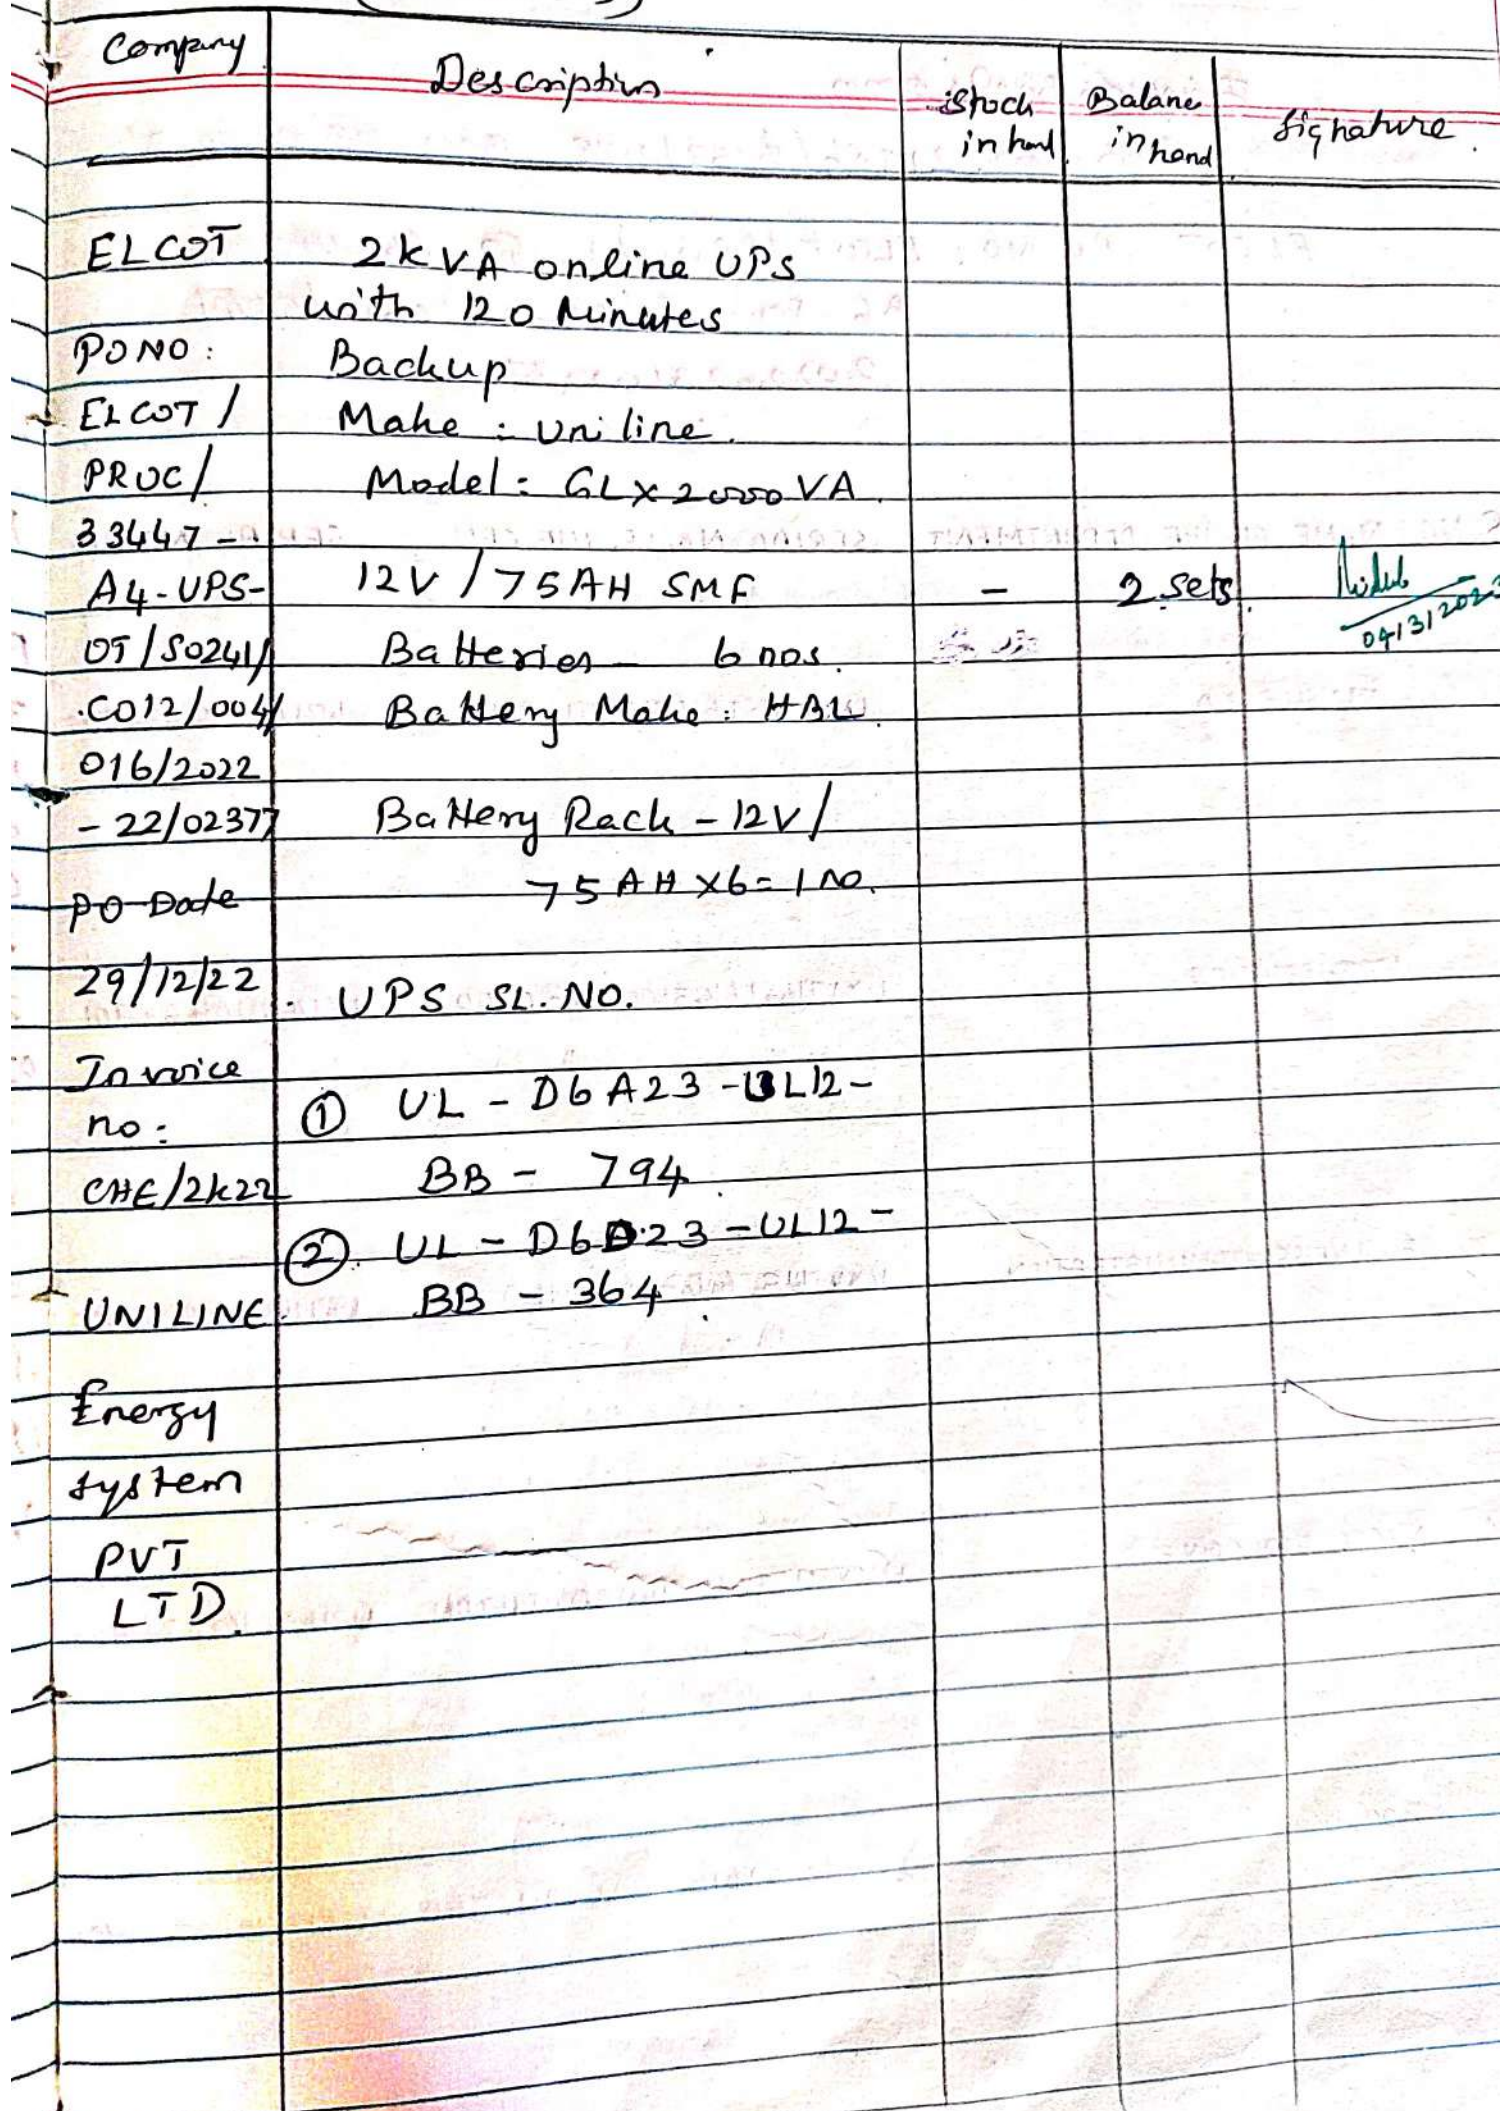 Company
Description
Stock in hand
Balane in hand
Signature.
ELCOT
PONO:
ELCOT/
PROC/
33447-
A4-UPS-
OT/S0241/
C012/004/
016/2022
- 22/02377
PO Date
29/12/22
Invoice
no:
CHE/2k22
UNILINE
Energy
System
PVT
LTD.
2kVA online UPS
with 120 Minutes
Backup
Make: Uniline.
Model: GLX2000VA.
12V/75AH SMF
Batteries - 6 nos.
Battery Make: HBL.
Battery Rack - 12V/
75AH X6=1 NO.
UPS SL. NO.
① UL - D6A23 - UL12 -
BB - 794.
② UL - D6D23 - UL12 -
BB - 364.
-
2 sets.
04/3/2023